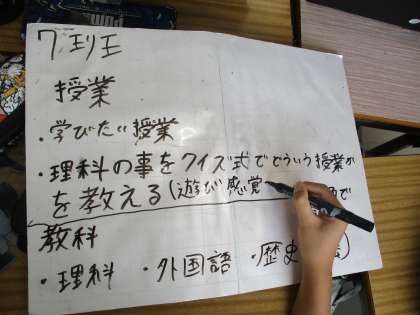 7班
授業
・学びたい授業
・理科の事をクイズ式でどういう授業か
を教える(遊び感覚 で
教科
・理科 ・外国語 ・歴史